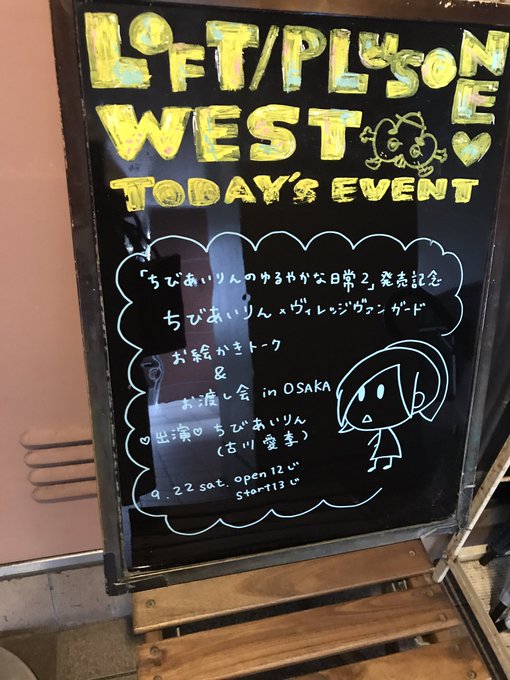 LOFT/PLUSONE
WEST
TODAY'S EVENT
「ちびあいりんのゆるやかな日常2」発売記念
ちびあいりん×ヴィレッジヴァンガード
お絵かきトーク
&
お渡し会 in OSAKA
♡出演♡ ちびあいりん
(古川愛李)
9.22 sat. open 12じ
start 13じ